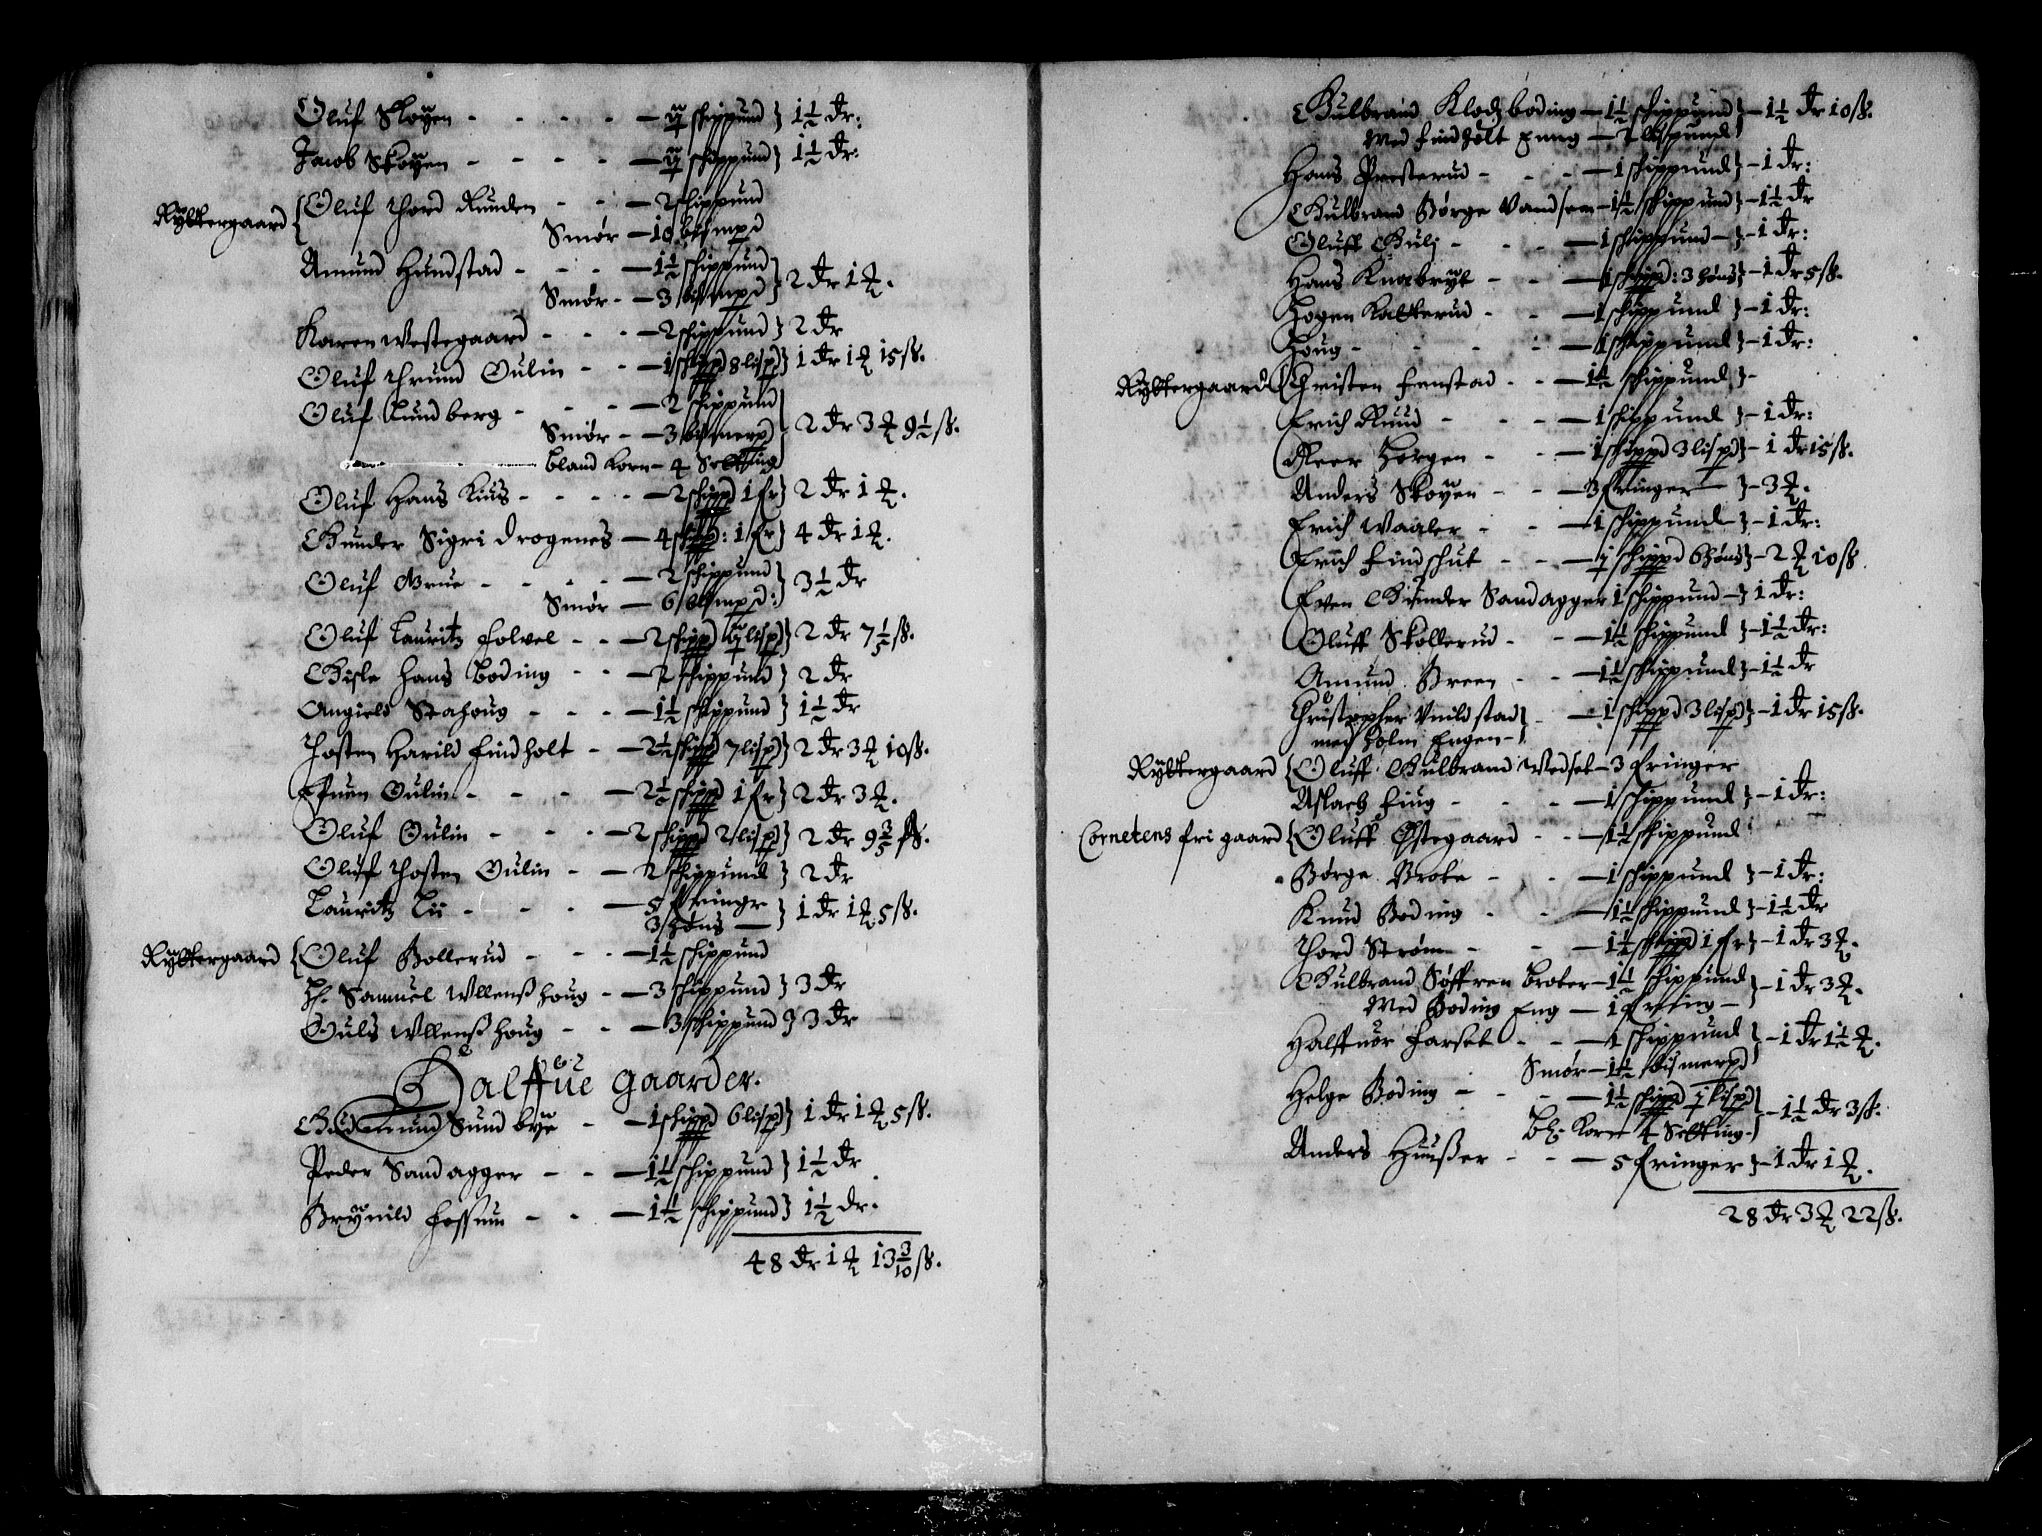 Oluf Skøÿen - - - - - ÿ schippund } 1½ dr:
Jacob Skøÿen - - - - - ÿ schippund } 1½ dr:
Rÿttergaard { Oluf Thord Runden - - - 2 schippund
Smør - 10 bismpd
Amund Hundstad - - - - 1½ schippund
Smør - - 3 bismpd } 2 dr 1 ort.
Karen Westegaard - - - - 2 schippund } 2 dr
Oluf Thrund Oulin - - - 1 schippd 8 lispd } 1 dr 1 ort 15 ß.
Oluf Lundberg - - - - 2 schippund
Smør - - 3 bismerpd } 2 dr 3 ort 9½ ß.
bland Korn - 4 Setting
Oluf Hans Kius - - - - 2 schippd 1 fr } 2 dr 1 ort.
Gunder Sigri Drogenes - 4 schippd: 1 fr } 4 dr 1 ort.
Oluf Grue - - - - - 2 schippund
Smør - 6 bismpd: } 3½ dr
Oluf Lauritz Folvel - - - 2 schippd ÿ lispd } 2 dr 7½ ß.
Gisle Hans Boding - - - 2 schippund } 2 dr
Angield Stahoug - - - - 1½ schippund } 1½ dr
Thosten Harild Findholt - - 2½ schippd 7 lispd } 2 dr 3 ort 10 ß.
Efuen Oulin - - - - 2½ schippd 1 fr } 2 dr 3 ort.
Oluf Oulin - - - - 2 schippd 2 lispd } 2 dr 9 3/5 ß.
Oluf Thosten Oulin - - - 2 schippund } 2 dr
Lauritz Lii - - - - 5 fringr
3 høns - } 1 dr 1 ort 5 ß.
Rÿttergaard { Oluf Bollerud - - - - 1½ schippund
Hr. Samuel Ullenßhoug - - 3 schippund } 3 dr
Guls Ullenßhoug - - - 3 schippund } 3 dr
Halffue gaarder.
Gudmund Sundbÿe - - 1 schippd 6 lispd } 1 dr 1 ort 5 ß.
Peder Sandagger - - - 1½ schippund } 1½ dr
Brÿnild Fossum - - - 1½ schippund } 1½ dr.
48 dr 1 ort 13 3/10 ß.
Gulbrand Klodzboding - 1½ schippund } - 1½ dr 10 ß.
Med findholt Enng - 2 lispund
Hans Presterud - - - 1 schippund } - 1 dr:
Gulbrand Børge Vandsem - 1½ schippund } - 1½ dr
Oluff Gulj - - - - 1 schippund - } - 1 dr:
Hans Knabrÿt - - - 1 schippd: 3 høns } - 1 dr 5 ß.
Hogen Katterud - - - 1 schippund } - 1 dr:
Houg - - - - - 1 schippund } - 1 dr:
Rÿttergaard { Christen Fenstad - - - 1½ schippund } -
Erich Ruud - - - - 1 schippund } - 1 dr:
Peer Horgen - - - 1 schippd 3 lispd } - 1 dr 15 ß.
Anders Skoÿen - - - 3 fringer - } - 3 ort.
Erich Waaler - - - 1 schippund - } - 1 dr:
Erich Findschut - - - ½ schippd 6 høns } - 2 ort 10 ß.
Even Gunder Sandagger 1 schippund - } 1 dr:
Oluff Skollerud - - - 1½ schippund } - 1½ dr:
Amund Breen - - - 1½ schippund } - 1½ dr
Christopher Vnildstad } - - 1 schippd 3 lispd } - 1 dr 15 ß.
med Holm Engen -
Rÿttergaard { Oluff Gulbrand Wedset - 3 fringer
Aslach Fiug - - - - 1 schippund } - 1 dr:
Cornetens fri gaard { Oluff Østegaard - - - 1½ schippund
Børge Brote - - - 1 schippund } - 1 dr:
Knud Boding - - - 1½ schippund } - 1½ dr
Thord Strøm - - - 1½ schippd 1 fr } - 1 dr 3 ort.
Gulbrand Søffren Broter - 1½ schippund
Med Boding Eng - 1 fring - } - 1 dr 3 ort.
Halffuor Farset - - - 1 schippund
Smør - 1½ bismerpd } - 1 dr 1½ ort.
Helge Boding - - - - 1½ schippd ½ lispd
Bl: Korn 4 Setting - } - 1½ dr 3 ß.
Anders Huußer - - - 5 fringer } - 1 dr 1 ort.
28 dr 3 ort 22 ß.